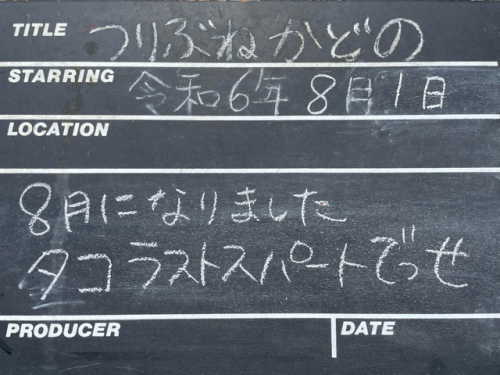 TITLE つりぶねかどの
STARRING 令和6年8月1日
LOCATION
8月になりました
タコラストスパートでっせ
PRODUCER DATE